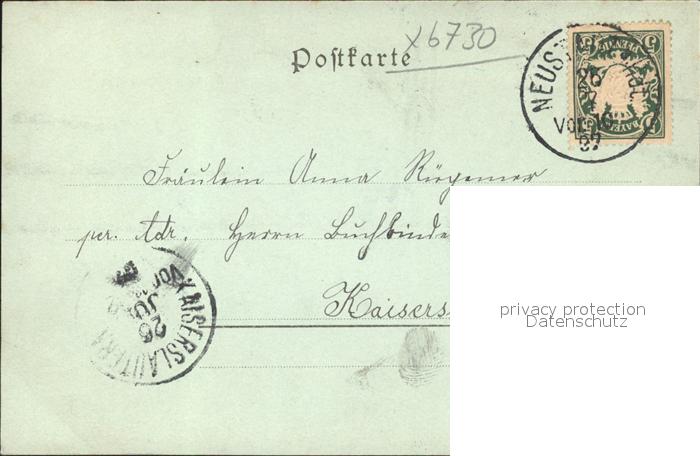 x6730
Postkarte
5 PFENNIG 5
BAYERN
NEUST
26
Vor. 10
97
Fräulein Anna Rügemer
per. Adr. Herrn Buchbinde
Kaisers
KAISERSLAUTERN
26
JU
Vor.
privacy protection
Datenschutz